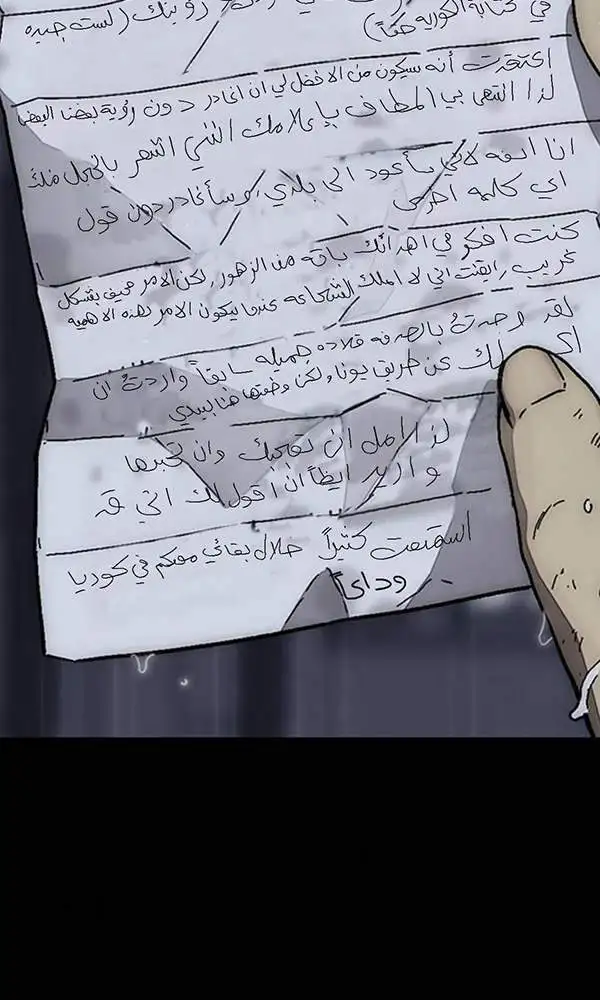 رؤيتك (لست جيده
في كتابة الكوريه حقاً)
اعتقدت أنه سيكون من الافضل لي ان اغادر دون رؤية بعضنا البعض
لذا انتهى بي المطاف بإعلامك انني اشعر بالخجل منك
انا اسفه لاني سأعود الى بلدي، وسأغادر دون قول
اي كلمه اخرى
كنت افكر في اهدائك باقه من الزهور، لكن الامر مخيف بشكل
غريب، ايقنت اني لا املك الشجاعه عندما يكون الامر بهذه الاهميه
لقد وجدت بالصدفه قلاده جميله سابقاً واردت ان
لك عن طريق يونا، ولكن وضعتها هنا بيدي
لذا امل ان تعجبك وان تحبها
واريد ايضاً ان اقول لك اني قد
استمتعت كثيراً خلال بقائي معكم في كوريا
وداعاً